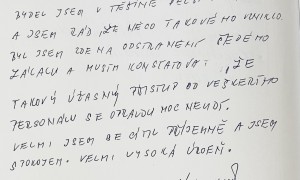 BYDEL JSEM V TĚŠÍNĚ
A JSEM RÁD, ŽE NĚCO TAKOVÉHO VZNIKLO.
BYL JSEM ZDE NA ODSTRANĚNÍ ŠEDÉHO
ZÁKALU A MUSÍM KONSTATOVAT, ŽE
TAKOVÝ ÚŽASNÝ PŘÍSTUP OD VEŠKERÉHO
PERSONÁLU SE OPRAVDU MOC NEVIDÍ.
VELMI JSEM SE CÍTIL PŘÍJEMNĚ A JSEM
SPOKOJEN. VELMI VYSOKÁ ÚROVEŇ.